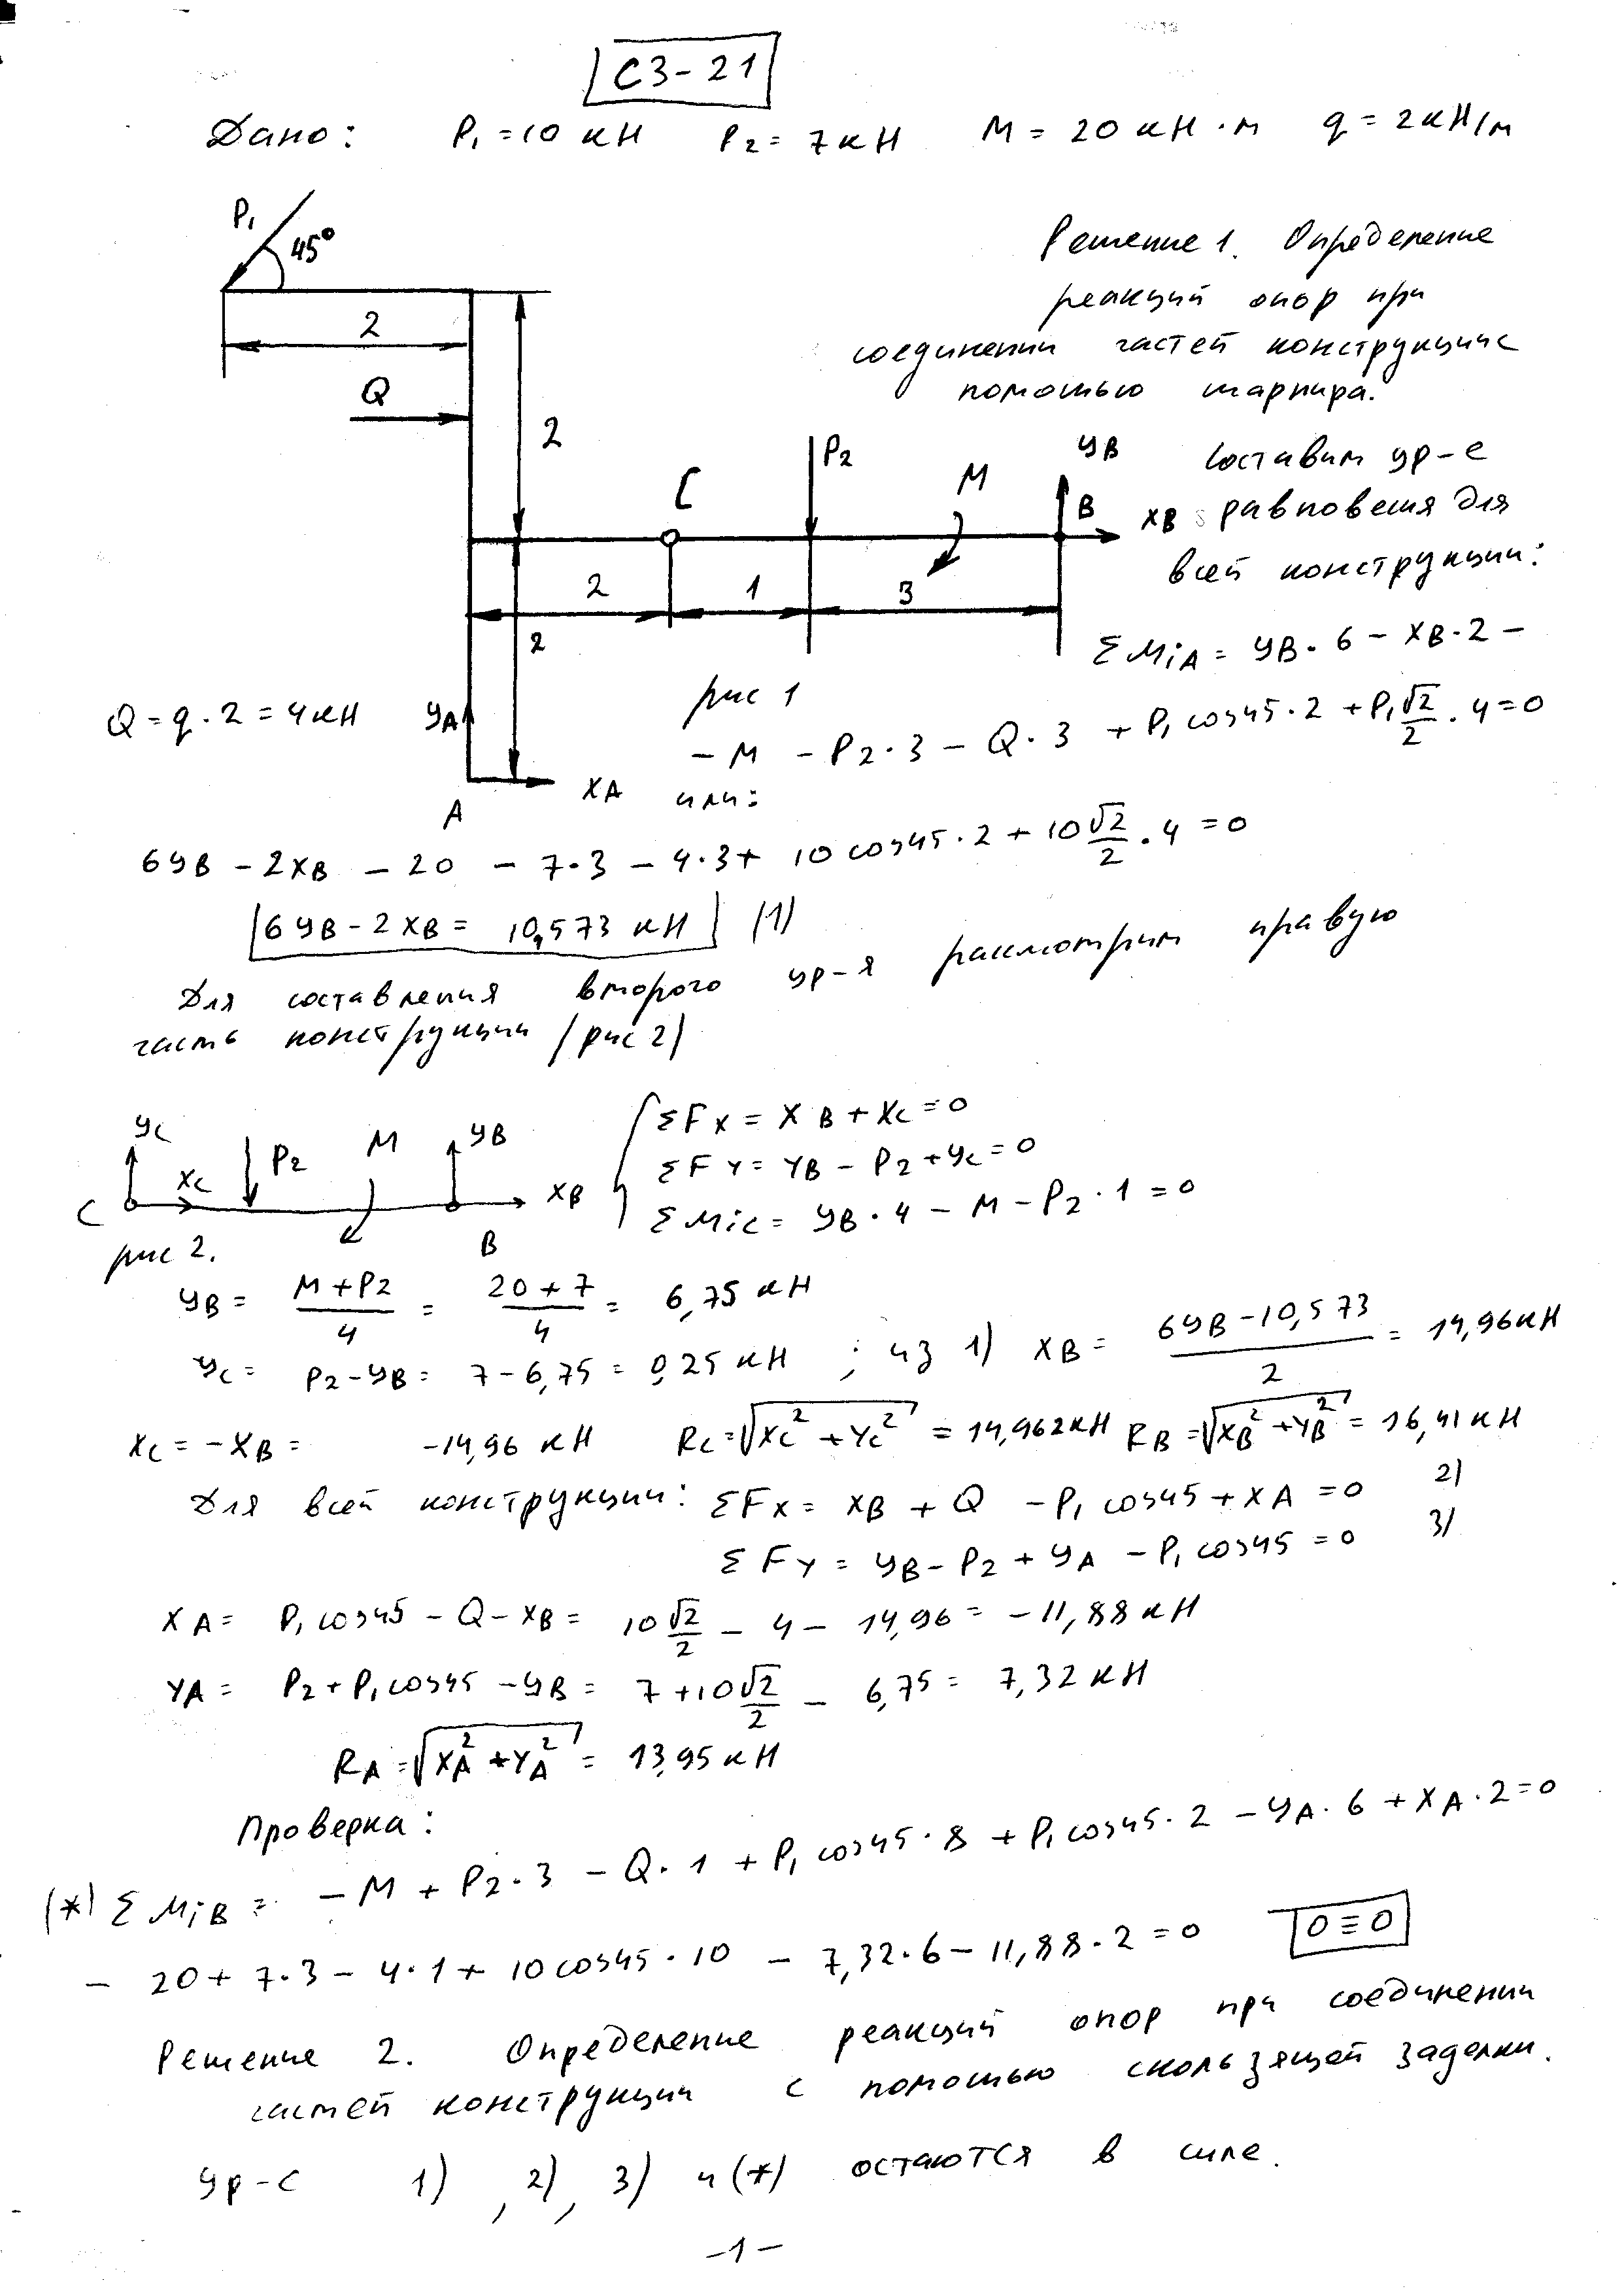 С3-21
Дано: P₁=10 кН P₂=7кН M=20 кН·м q=2кН/м
P₁
45°
2
Q
2
C
P₂
M
yB
B
xB
2
1
3
2
рис 1
Q=q·2=4кН
yA
xA
A
Решение 1. Определение
реакций опор при
соединении частей конструкции с
помощью шарнира.
Составим ур-е
равновесия для
всей конструкции:
ΣMiA = yB·6 - xB·2 -
- M - P₂·3 - Q·3 + P₁cos45·2 + P₁√2/2·4=0
или:
6yB - 2xB - 20 - 7·3 - 4·3 + 10cos45·2 + 10√2/2·4=0
6yB - 2xB = 10,573 кН (1)
Для составления второго ур-я рассмотрим правую
часть конструкции (рис 2)
yC
xC
C
P₂
M
yB
xB
B
рис 2.
ΣFx = XB + XC = 0
ΣFY = YB - P₂ + yC = 0
ΣMiC = yB·4 - M - P₂·1 = 0
yB = (M+P2)/4 = (20+7)/4 = 6,75 кН
yC = P₂-yB = 7-6,75 = 0,25 кН ; из 1) XB = (6yB-10,573)/2 = 14,96кН
XC = -XB = -14,96 кН RC=√(XC²+YC²) = 14,962кН RB=√(XB²+YB²) = 16,41кН
Для всей конструкции: ΣFx = XB + Q - P₁cos45 + XA = 0 2)
ΣFY = yB - P₂ + yA - P₁cos45 = 0 3)
XA = P₁cos45 - Q - XB = 10√2/2 - 4 - 14,96 = -11,88кН
YA = P₂+P₁cos45 - yB = 7+10√2/2 - 6,75 = 7,32кН
RA=√(XA²+YA²) = 13,95кН
Проверка:
(*) ΣMiB = -M + P₂·3 - Q·1 + P₁cos45·8 + P₁cos45·2 - yA·6 + XA·2=0
- 20+7·3-4·1+10cos45·10 - 7,32·6 - 11,88·2=0 0≡0
Решение 2. Определение реакций опор при соединении
частей конструкции с помощью скользящей заделки.
ур-е 1), 2), 3) и (*) остаются в силе.
-1-